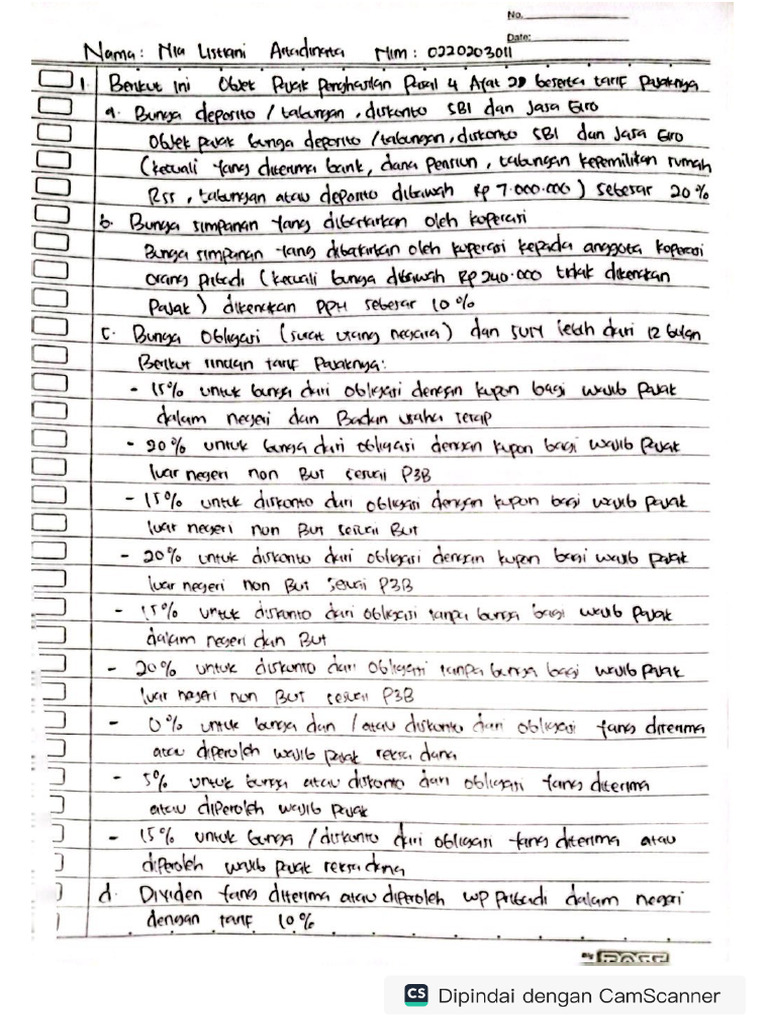 No.
Date:
Nama: Nia Listiani Artadinata Nim: 0220203011
1. Berikut ini Objek Pajak Penghasilan Pasal 4 Ayat 2 beserta tarif Pajaknya
a. Bunga deposito / tabungan, diskonto SBI dan Jasa Giro
Objek pajak bunga deposito / tabungan, diskonto SBI dan Jasa Giro
(kecuali yang diterima bank, dana Pensiun, tabungan kepemilikan rumah
Rss, tabungan atau deposito dibawah Rp 7.000.000) sebesar 20%
b. Bunga simpanan yang dibayarkan oleh koperasi
Bunga simpanan yang dibayarkan oleh koperasi kepada anggota koperasi
orang pribadi (kecuali bunga dibawah Rp 240.000 tidak dikenakan
Pajak) dikenakan PPH sebesar 10%
c. Bunga Obligasi (surat utang negara) dan SUN lebih dari 12 bulan
Berikut rincian tarif Pajaknya:
- 15% untuk bunga dari obligasi dengan kupon bagi wajib Pajak
dalam negeri dan Badan usaha tetap
- 20% untuk bunga dari obligasi dengan kupon bagi wajib Pajak
luar negeri non But sesuai P3B
- 15% untuk diskonto dari obligasi dengan kupon bagi wajib pajak
luar negeri non But sesuai But
- 20% untuk diskonto dari obligasi dengan kupon bagi wajib Pajak
luar negeri non But sesuai P3B
- 15% untuk diskonto dari obligasi tanpa bunga bagi wajib Pajak
dalam negeri dan But
- 20% untuk diskonto dari obligasi tanpa bunga bagi wajib Pajak
luar negeri non But sesuai P3B
- 0% untuk bunga dan / atau diskonto dari obligasi yang diterima
atau diperoleh wajib pajak reksa dana
- 5% untuk bunga atau diskonto dari obligasi yang diterima
atau diperoleh wajib Pajak
- 15% untuk bunga / diskonto dari obligasi yang diterima atau
diperoleh wajib pajak reksa dana
d. Dividen yang diterima atau diperoleh WP Pribadi dalam negeri
dengan tarif 10%
BOSS
CS Dipindai dengan CamScanner